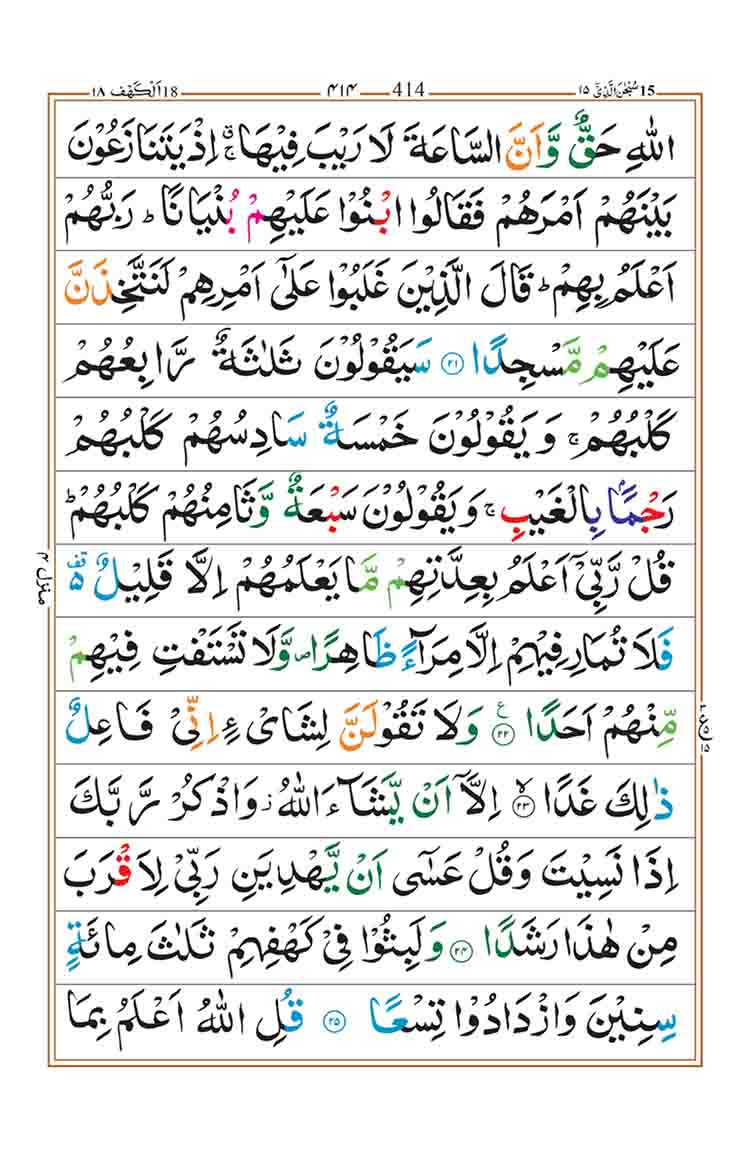 ١٨ اَلْكَهْف 18 ٤١٤ 414 ١٥ سُبْحٰنَ الَّذِیْۤ 15
اللّٰهِ حَقٌّ وَّاَنَّ السَّاعَةَ لَا رَیْبَ فِیْهَا ۚۗ اِذْ یَتَنَازَعُوْنَ
بَیْنَهُمْ اَمْرَهُمْ فَقَالُوا ابْنُوْا عَلَیْهِمْ بُنْیَانًا ؕ رَبُّهُمْ
اَعْلَمُ بِهِمْ ؕ قَالَ الَّذِیْنَ غَلَبُوْا عَلٰۤی اَمْرِهِمْ لَنَتَّخِذَنَّ
عَلَیْهِمْ مَّسْجِدًا ۝۲۱ سَیَقُوْلُوْنَ ثَلٰثَةٌ رَّابِعُهُمْ
كَلْبُهُمْ ۚ وَیَقُوْلُوْنَ خَمْسَةٌ سَادِسُهُمْ كَلْبُهُمْ
رَجْمًۢا بِالْغَیْبِ ۚ وَیَقُوْلُوْنَ سَبْعَةٌ وَّثَامِنُهُمْ كَلْبُهُمْ ؕ
قُلْ رَّبِّیْۤ اَعْلَمُ بِعِدَّتِهِمْ مَّا یَعْلَمُهُمْ اِلَّا قَلِیْلٌ ۵ قف
فَلَا تُمَارِ فِیْهِمْ اِلَّا مِرَآءً ظَاهِرًا ۪ وَّلَا تَسْتَفْتِ فِیْهِمْ
مِّنْهُمْ اَحَدًا ۝۲۲ ع وَلَا تَقُوْلَنَّ لِشَایْءٍ اِنِّیْ فَاعِلٌ
ذٰلِكَ غَدًا ۝۲۳ ۙ اِلَّاۤ اَنْ یَّشَآءَ اللّٰهُ ؗ وَاذْكُرْ رَّبَّكَ
اِذَا نَسِیْتَ وَقُلْ عَسٰۤی اَنْ یَّهْدِیَنِ رَبِّیْ لِاَقْرَبَ
مِنْ هٰذَا رَشَدًا ۝۲۴ وَلَبِثُوْا فِیْ كَهْفِهِمْ ثَلٰثَ مِائَةٍ
سِنِیْنَ وَازْدَادُوْا تِسْعًا ۝۲۵ قُلِ اللّٰهُ اَعْلَمُ بِمَا
منزل ۴